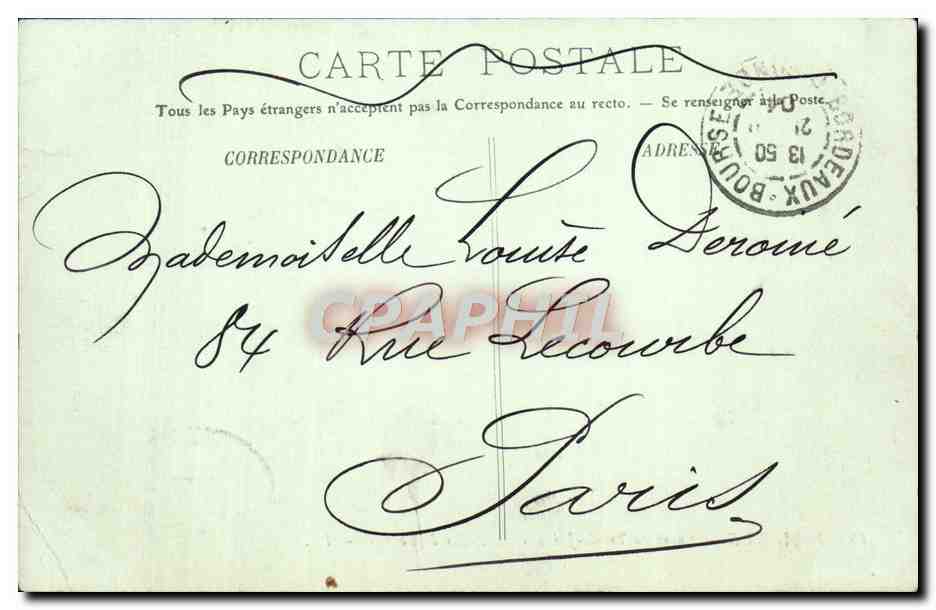 CARTE POSTALE
Tous les Pays étrangers n'acceptent pas la Correspondance au recto. — Se renseigner à la Poste
CORRESPONDANCE
ADRESSE
BORDEAUX - BOURSE
13 50
Mademoiselle Louise Deromé
84 Rue Lecourbe
Paris
CPAPHIL